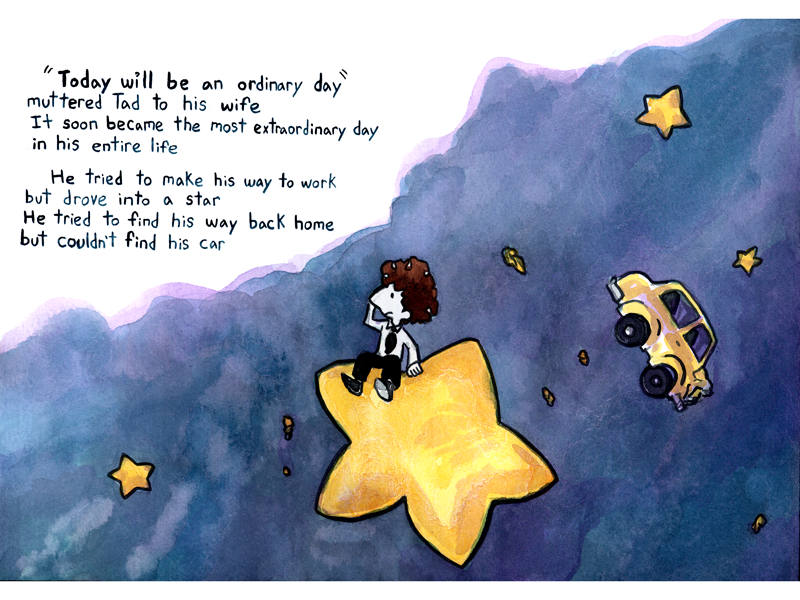 "Today will be an ordinary day"
muttered Tad to his wife
It soon became the most extraordinary day
in his entire life
He tried to make his way to work
but drove into a star
He tried to find his way back home
but couldn't find his car